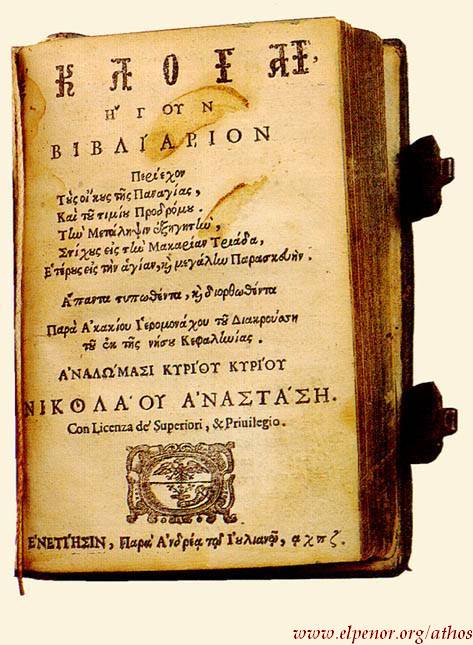 ΚΛΟΓΑῚ,
ἬΓΟΥΝ
ΒΙΒΛΙΆΡΙΟΝ
Περιέχον
Τοὺς οἴκους τῆς Παναγίας,
Καὶ τοῦ τιμίου Προδρόμου.
Τὴν Μετάληψιν ἐξηγητὴν,
Στίχους εἰς τὴν Μακαρίαν Τριάδα,
Ἑτέρους εἰς τὴν ἁγίαν, ϗ μεγάλην Παρασκευὴν.
Ἅπαντα τυπωθέντα, ϗ διορθωθέντα
Παρὰ Ἀκακίου Ἱερομονάχου τοῦ Διακρούση
τοῦ ἐκ τῆς νήσου Κεφαλληνίας.
ἈΝΑΛΏΜΑΣΙ ΚΥΡΙΟΥ ΚΥΡΙΟΥ
ΝΙΚΟΛΆΟΥ ἈΝΑΣΤΆΣΗ.
Con Licenza de' Superiori, & Priuilegio.
ἘΝΕΤΙΗΣΙΝ, Παρὰ Ἀνδρέᾳ τῷ Ἰουλιανῷ, αχπζ.
www.elpenor.org/athos